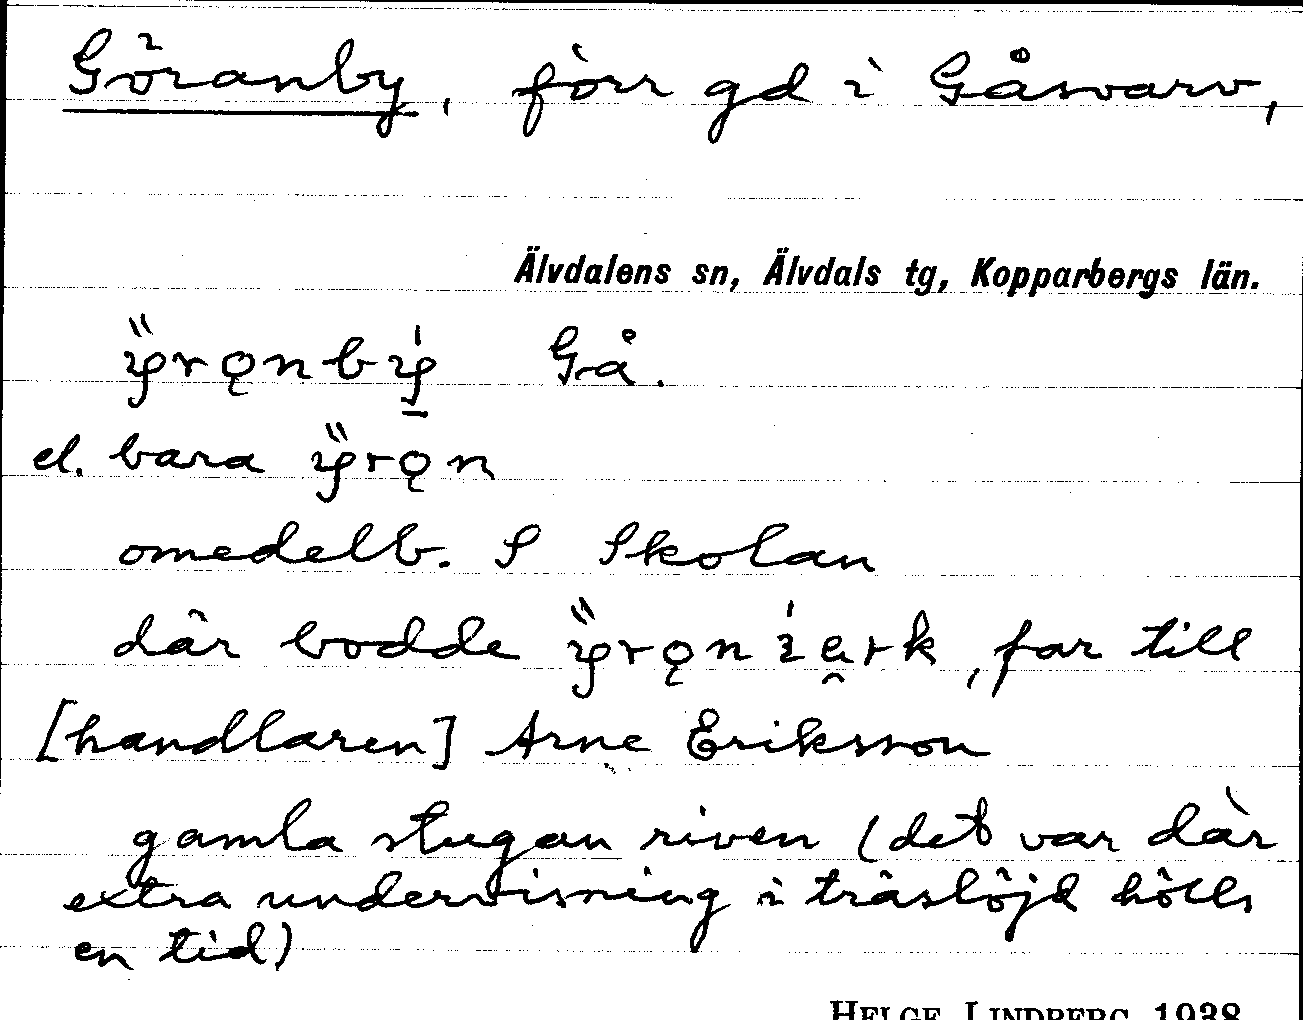 Göranby, förr gd i Gåsvarv,
Älvdalens sn, Älvdals tg, Kopparbergs län.
Gå.
el. bara
omedelb. S Skolan
där bodde , far till
[handlaren] Arne Eriksson
gamla stugan riven (det var där
extra undervisning i träslöjd hölls
en tid)
HELGE LINDBERG 1938